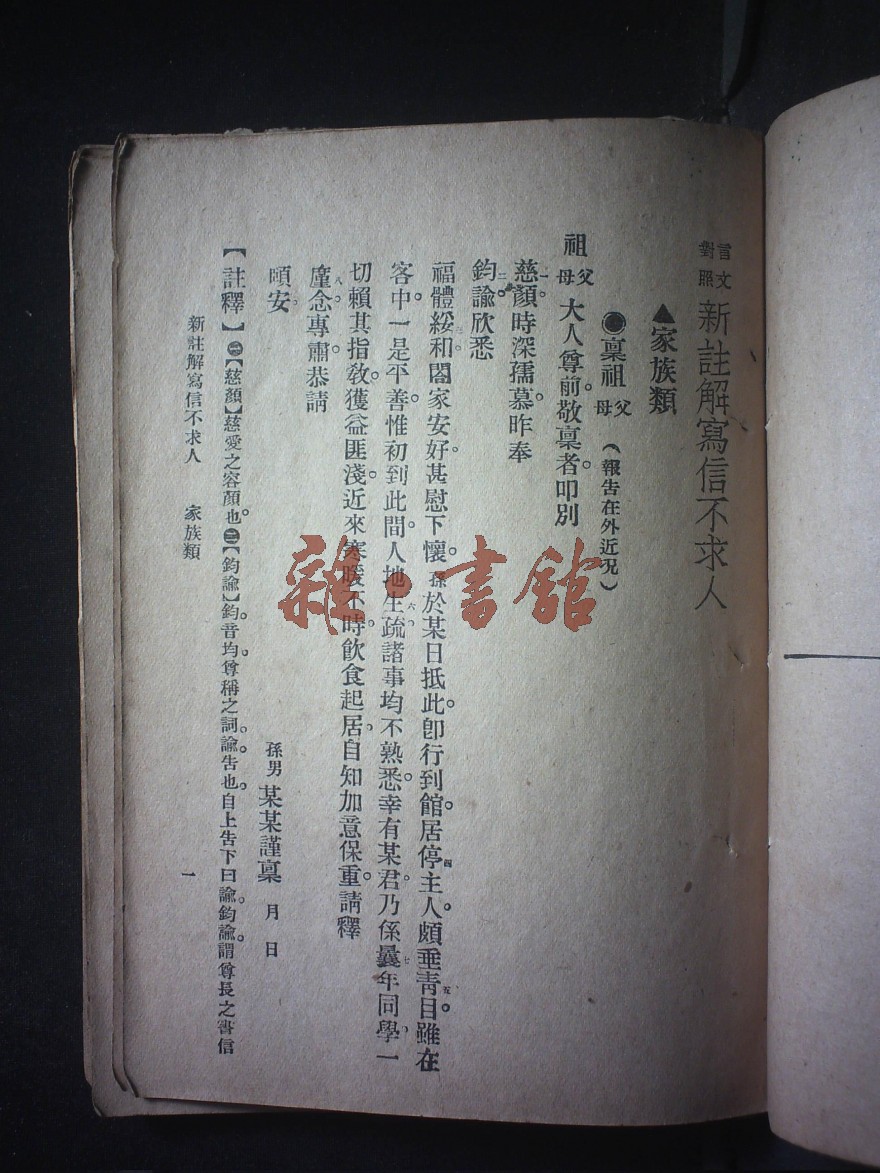 言文對照 新註解寫信不求人
▲家族類
●稟祖父母（報告在外近況）
祖父母大人尊前。敬稟者。叩別
慈顏。時深孺慕。昨奉
鈞諭。欣悉
福體綏和。闔家安好。甚慰下懷。孫於某日抵此。卽行到館。居停主人。頗垂靑目。雖在
客中。一是平善。惟初到此間。人地生疏。諸事均不熟悉。幸有某君。乃係曩年同學。一
切賴其指敎。獲益匪淺。近來寒暖不時。飲食起居。自知加意保重。請釋
廑念。專肅。恭請
頤安。
孫男某某謹稟 月 日
【註釋】㊀【慈顏】慈愛之容顏也。㊁【鈞諭】鈞。音均。尊稱之詞。諭。告也。自上告下曰諭。鈞諭。謂尊長之書信
新註解寫信不求人 家族類 一
雜·書館